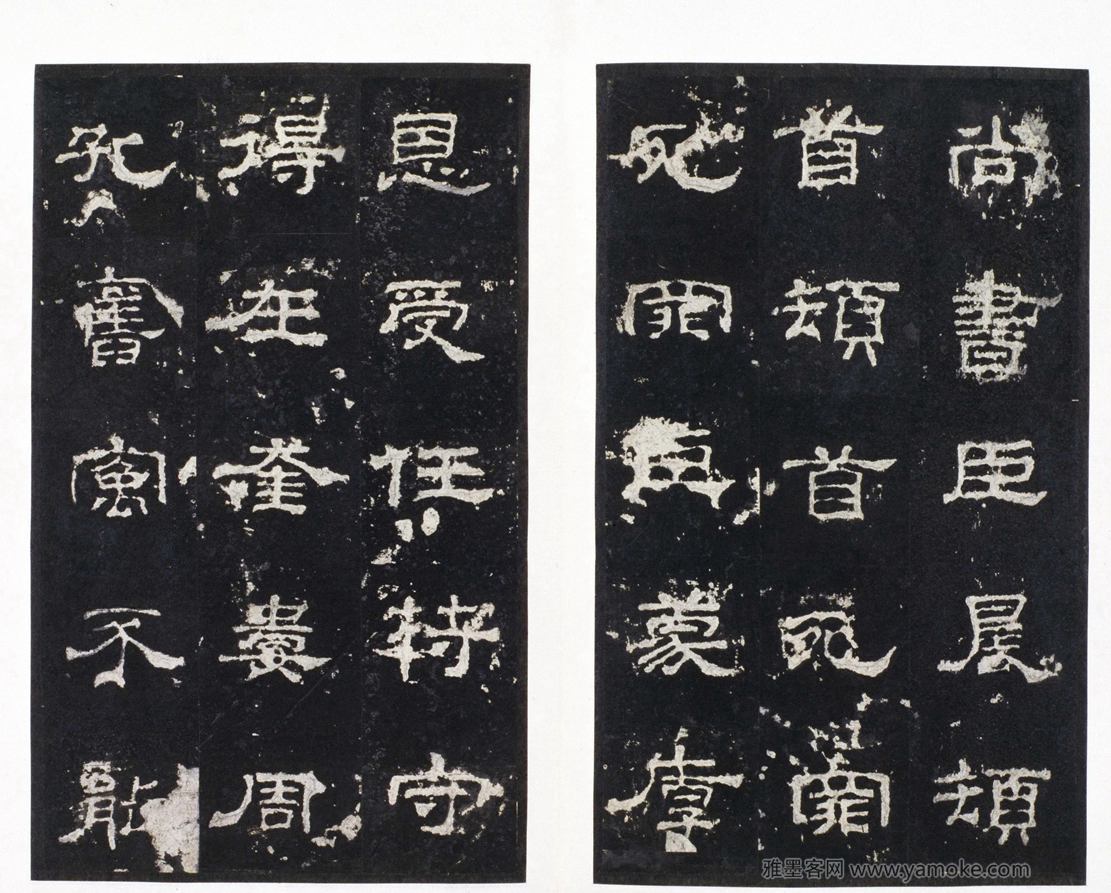 尚書臣晨頓
首頓首死罪
死罪臣蒙厚
恩受任符守
得在奎婁周
孔舊寓不能
雅墨客网 www.yamoke.com